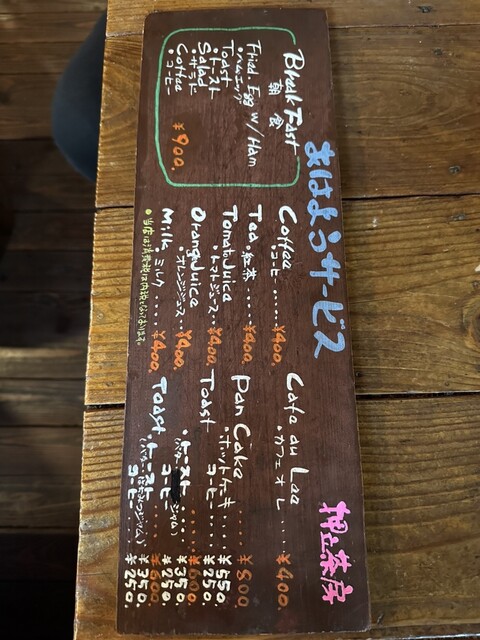 おはようサービス
押立茶房
Break Fast
朝食
Fried Egg w/Ham
・ハムエッグ
Toast
・トースト
Salad
・サラダ
Coffee
・コーヒー ¥900.
Coffee
・コーヒー......¥400.
Tea 紅茶.....¥400.
Tomato Juice
・トマトジュース..¥400.
Orange Juice
・オレンジジュース..¥400.
Milk
・ミルク....¥400.
●当店は消費税は内税となっております。
Cafe au Lae
・カフェオレ....¥400.
Pan Cake......¥800.
・ホットケーキ....¥550.
コーヒー....¥250.
Toast......¥600.
・トースト....¥350.
コーヒー....¥250.
Toast......¥600.
・トースト....¥350.
コーヒー....¥250.